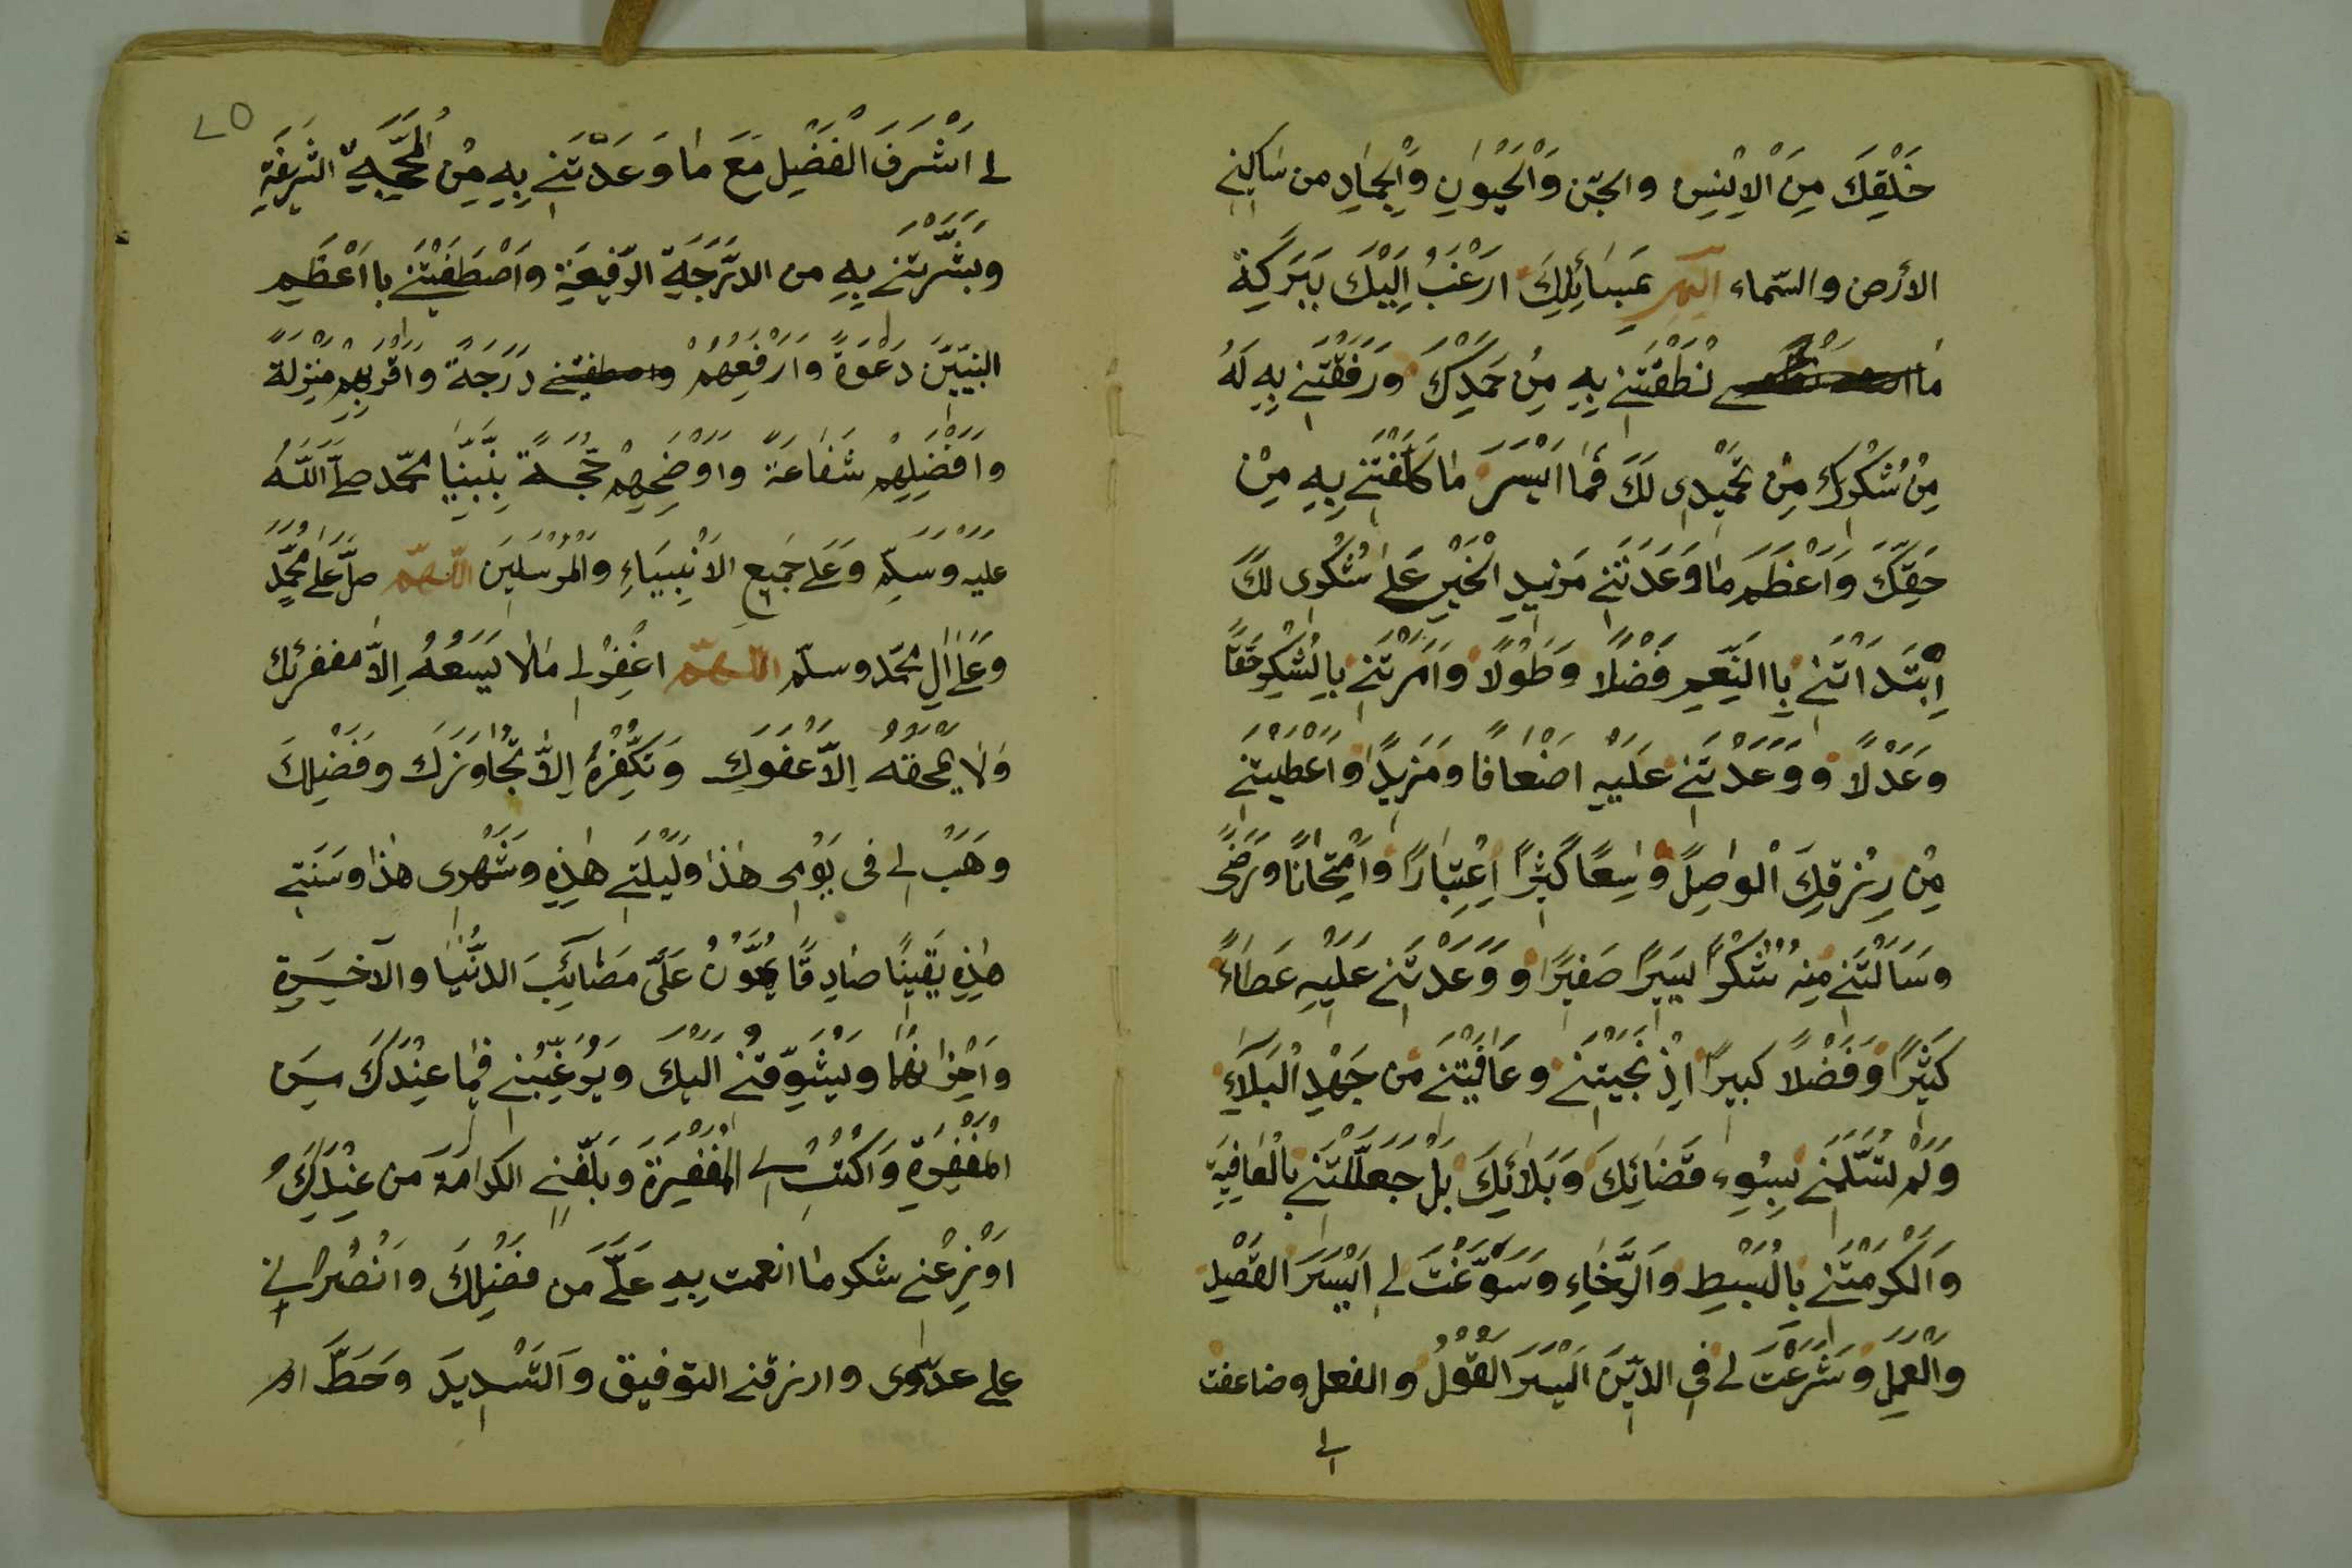 خَلْقِكَ مِنَ الْاِنْسِ والجِنّ وَالْحَيْوٰانِ وَالْجِمٰادِ من سٰاكِنِى
الأرض والسّماء اللّهم عَسٰائِلِكَ ارَغْبُ اِلَيْكَ بَبَرَكِةَ
مٰا نُطَقْتَنِى بِهِ مِنْ حَمَدِكَ وَرَفَقْتَنِى بِهِ لَهُ
مِنْ شُكْرِكَ مِنْ تَحْمِيْدِى لَكَ فَمٰا اَيْسَرَ مٰا كَلَّفْتَنِى بِهِ مِنْ
حَقِّكَ وَاَعْظَمَ مٰا وَعَدْتَنِى مَزِيدِ الْخَيْرِ عَلىٰ شُكْرِى لَكَ
اِبْتَدَاْتَنِى بِاالنِّعَمِ فَضْلاً وَطَوْلًا وَاَمَرْتَنِى بِالشُّكْرِ حَقًّا
وعَدْلًا وَوَعَدْتَنِى عَلَيْهِ اَضْعٰافًا ومَزِيدًا وَاَعْطَيْتَنِى
مِنْ رِزْقِكَ الْوٰاصِلً وٰاسِعًا كَثِيْرًا اِعْتِبٰارًا وَامْتِحٰانًا ورَضًى
وسَاَلْتَنِى مِنه شُكْرًا يَسِيرًا صَغيرًا وَوَعَدْتَنِى عَلَيْهِ عَطٰاءً
كَثِيْرًا وَفَضْلًا كبيرًا اِذْ نَجَّيْتَنِى وعٰافَيْتَنِى مِن جَهْدِ الْبَلَاءِ
وَلَمْ تُسَلِّمْنِى بِسُوءِ قَضٰائِكَ وَبَلَائِكَ بَلْ جَعَلْلتَنِى بالْعٰافِيَةِ
وَاَكْرَمْتَنِى بِالْبَسْطِ وَالرَّخٰاءِ وَسَوَّغْتَ لِى اَيْسَرَ القَصْدِ
وَالْعَمِلَ وَشَرَعْتَ لى فِى الدِّيْنَ اَيْسَرَ الْقَوْلُ والفعل وضاعفت
لى
٧٥
لى اَشْرَفَ الْفَضْلِ مَعَ مٰا وَعَدْتَنِى بِهِ مِنْ الْمُحَجَّةِ الشَّرِيفَةِ
وبَشَّرْتَنِى بِهِ من الدَّرَجَةِ الرَّفِيعَةِ واَصْطَفَيْتَنِى بااَعْظَمِ
النَّبِيِّيْنَ دَعْوَةً وَاَرْفَعِهُمْ واصطفيتنى دَرَجَةً وَاَقْرَبِهِمْ مَنْزِلَةً
وَاَفْضَلِهِمْ شَفٰاعَةً وَاَوْضَحِهِمْ حُجَّةً بِنَبِيِّنٰا محمّد صلّى اللّٰهُ
عليه وَسَلّم وَعَلى جَميعِ الاَنْبِيَاءِ وَالْمُرْسَلِيْنَ اللّهمّ صلِّ عَلى مُحَمَّدٍ
وعَلٰى اٰلِ محمّد وسلّم اللّهمّ اغْفِرْلى مٰا لٰا يَسَعُهُ اِلاّ مغفرتك
وَلٰا يمْحَقُهُ اِلاّ عَفْوَكِ وَتَكَفِّرهُ اِلاَّ تَجٰاوَزَكَ وفَضْلِكَ
وهَبْ لى فى يَوْمِى هٰذٰا ولَيْلَتى هٰذِهِ وشَهْرِى هٰذا وسَنَتِى
هٰذِهِ يَقينًا صٰادِقًا يُهَوِّنُ عَلَىَّ مَصٰائِبَ الدُّنْيٰا والآخِرَةِ
وَاَحْزٰانَهُمٰا ويُشَوِّقُنِى اِلَيْكَ ويُرَغِّبُنِى فِيْمٰا عِنْدَكَ مِن
الْمَغْفِرَةِ وَاكْتُبْ لى الْمَغْفِرَةَ وبَلِّغْنِى الكرٰامَةَ مَن عِنْدِكَ
اَوْزِعْنِى شكر مٰا انعمت بِهِ عَلَىَّ مَن فَضْلِكَ وانْصُرْنى
على عدّوى وارزقنى التوفيق وَالتَّسْدِيدَ وحَطَّ